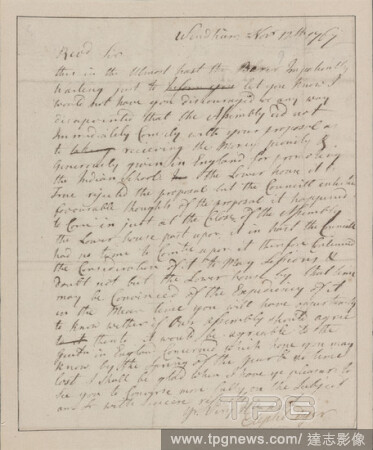 Windham Nov 17th 1767
Revd Sir
this in the utmost hast the Impatiently
waiting just to let you know I
would not have you discouraged or any way
disappointed that the Assembly did not
immediately Comply with your proposal as
to receiving the Money
Generously given in England for promoting
the Indian Schools the Lower house it
True rejected the proposal but the Councill
favourable thoughts of the proposal it happened
to Come in just at the Close of the Assembly
the Lower house past upon it in hast the Councill
had no time to upon it therefore Continued
the Consideration of it to May Sessions &
doubt not but the Lower house by that time
may be Convinced of the Expediency of it
in the Mean time you will have opportunity
to know wether if Our Assembly should agree
to it would be agreeable to the
in England Concerned to which hope you may
know by the Spring of the year to no time
lost I shall be glad when it have ye pleasure to
see you to Congrise more fully on the Subject
am with sincere
yr
TPG
www.tpgnews.com / 達志影像